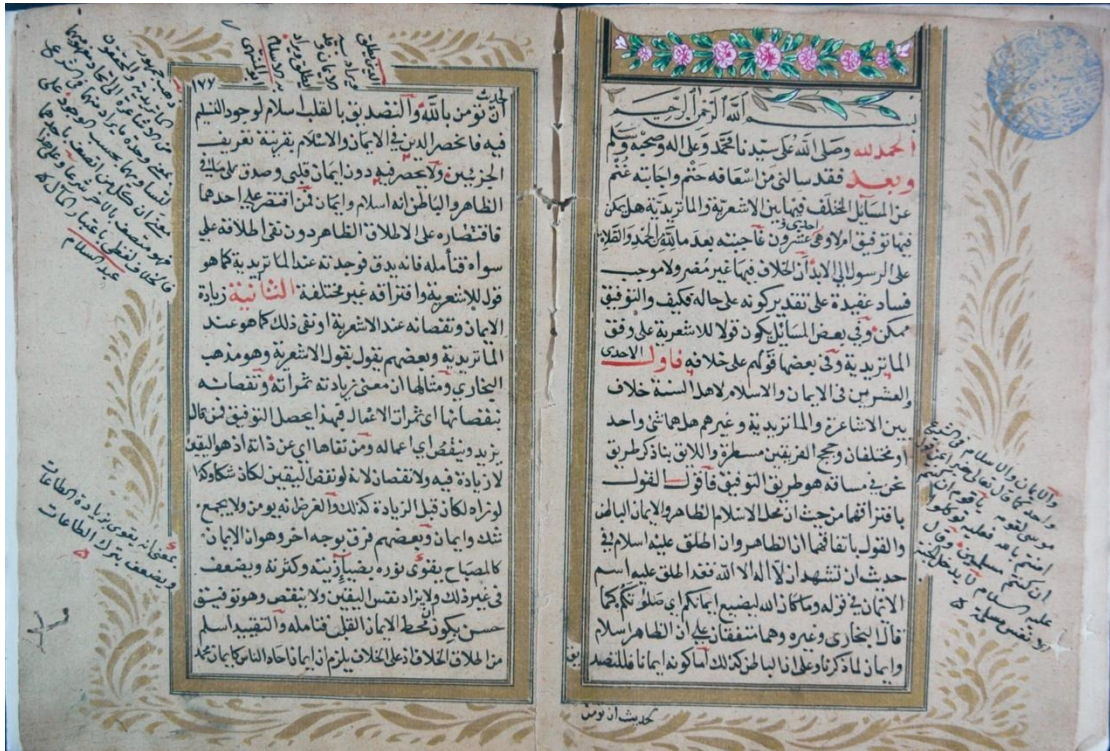 بسم الله الرحمن الرحيم
الحمد لله وصلى الله على سيدنا محمد وعلى اله وصحبه وسلم
وبعد فقد سالنى من اسعافه حتم واجابته غنم
عن المسايل المختلف فيها بين الاشعرية والماتريدية هل يمكن
فيها توفيق اولا وهى احدى وعشرون فاجبته بعد ما لله الحمد والصلاة
على الرسول الى الابد ان الخلاف فيها غير مضر ولا موجب
فساد عقيدة على تقدير كونه على حاله فكيف والتوفيق
ممكن وفى بعض المسايل يكون قولا للاشعرية على وفق
الماتريدية وفى بعضها قولهم على خلافه فاول الاحدى
والعشرين فى الايمان والاسلام لاهل السنة خلاف
بين الاشاعرة والماتريدية وغيرهم هل هما شئ واحد
او مختلفان وحجج الفريقين مسطرة واللائق بنا ذكر طريق
نحن فى مساقه هو طريق التوفيق فاقول القول
بافتراقهما من حيث ان محل الاسلام الظاهر والايمان الباطن
والقول باتفاقهما ان الظاهر وان اطلق عليه اسلام فى
حديث ان تشهد ان لا اله الا الله فقد اطلق عليه اسم
الايمان فى قوله وما كان الله ليضيع ايمانكم اى صلوتكم كما
قال البخارى وغيره وهما متفقان على ان الظاهر اسلام
وايمان لما ذكرناه وعلى ان الباطن كذلك اما كونه ايمانا فللتصديق
حديث ان تومن
والايمان والاسلام فى الشرع
واحد كما قال تعالى خبرا عن قول
موسى لقومه يا قوم ان كنتم
امنتم بالله فعليه توكلوا
ان كنتم مسلمين وقال
عليه السلام لا يدخل الجنة
الا نفس مسلمة
١٧٧
لحديث
ان تومن بالله والتصديق بالقلب اسلام لوجود التسليم
فيه فانحصر الدين فى الايمان والاسلام بقرينة تعريف
الجزئين ولا يحصر فيه دون ايمان قلبى وصدق على ما فى
الظاهر والباطن انه اسلام وايمان فمن اقتصر على احدهما
فاقتصاره على الاطلاق الظاهر دون نفى اطلاقه على
سواه فتأمله فانه يدق فوجدته عند الماتريدية كما هو
قول للاشعرية وافتراقه غير مختلفة الثانية زيادة
الايمان ونقصانه عند الاشعرية او نفى ذلك كما هو عند
الماتريدية وبعضهم يقول بقول الاشعرية وهو مذهب
البخارى ومثالها ان معنى زيادته ثمراته ونقصانه
بنقصانها اى ثمرات الاعمال فبهذا يحصل التوفيق فمن قال
يزيد وينقص اى اعماله ومن نفاها اى عن ذاته اذ هو اليقين
لا زيادة فيه ولا نقصان لانه لو نقص اليقين لكان شكا وكذا
لو زاد لكان قبل الزيادة كذلك والفرض انه يومن ولا يجمع
شك وايمان وبعضهم فرق بوجه اخر وهو ان الايمان
كالمصباح يقوى نوره بضياء زيته وكثرته ويضعف
فى غير ذلك ولا يزاد نفس اليقين ولا ينقص وهو توفيق
حسن يكون محط الايمان القلبى فتامله والتقييد اسلم
من اطلاق الخلاف اذ على الخلاف يلزم ان ايمان احاد الناس كايمان محمد
عبد السلام
يعنى انه يقوى بزيادة الطاعات
ويضعف بترك الطاعات